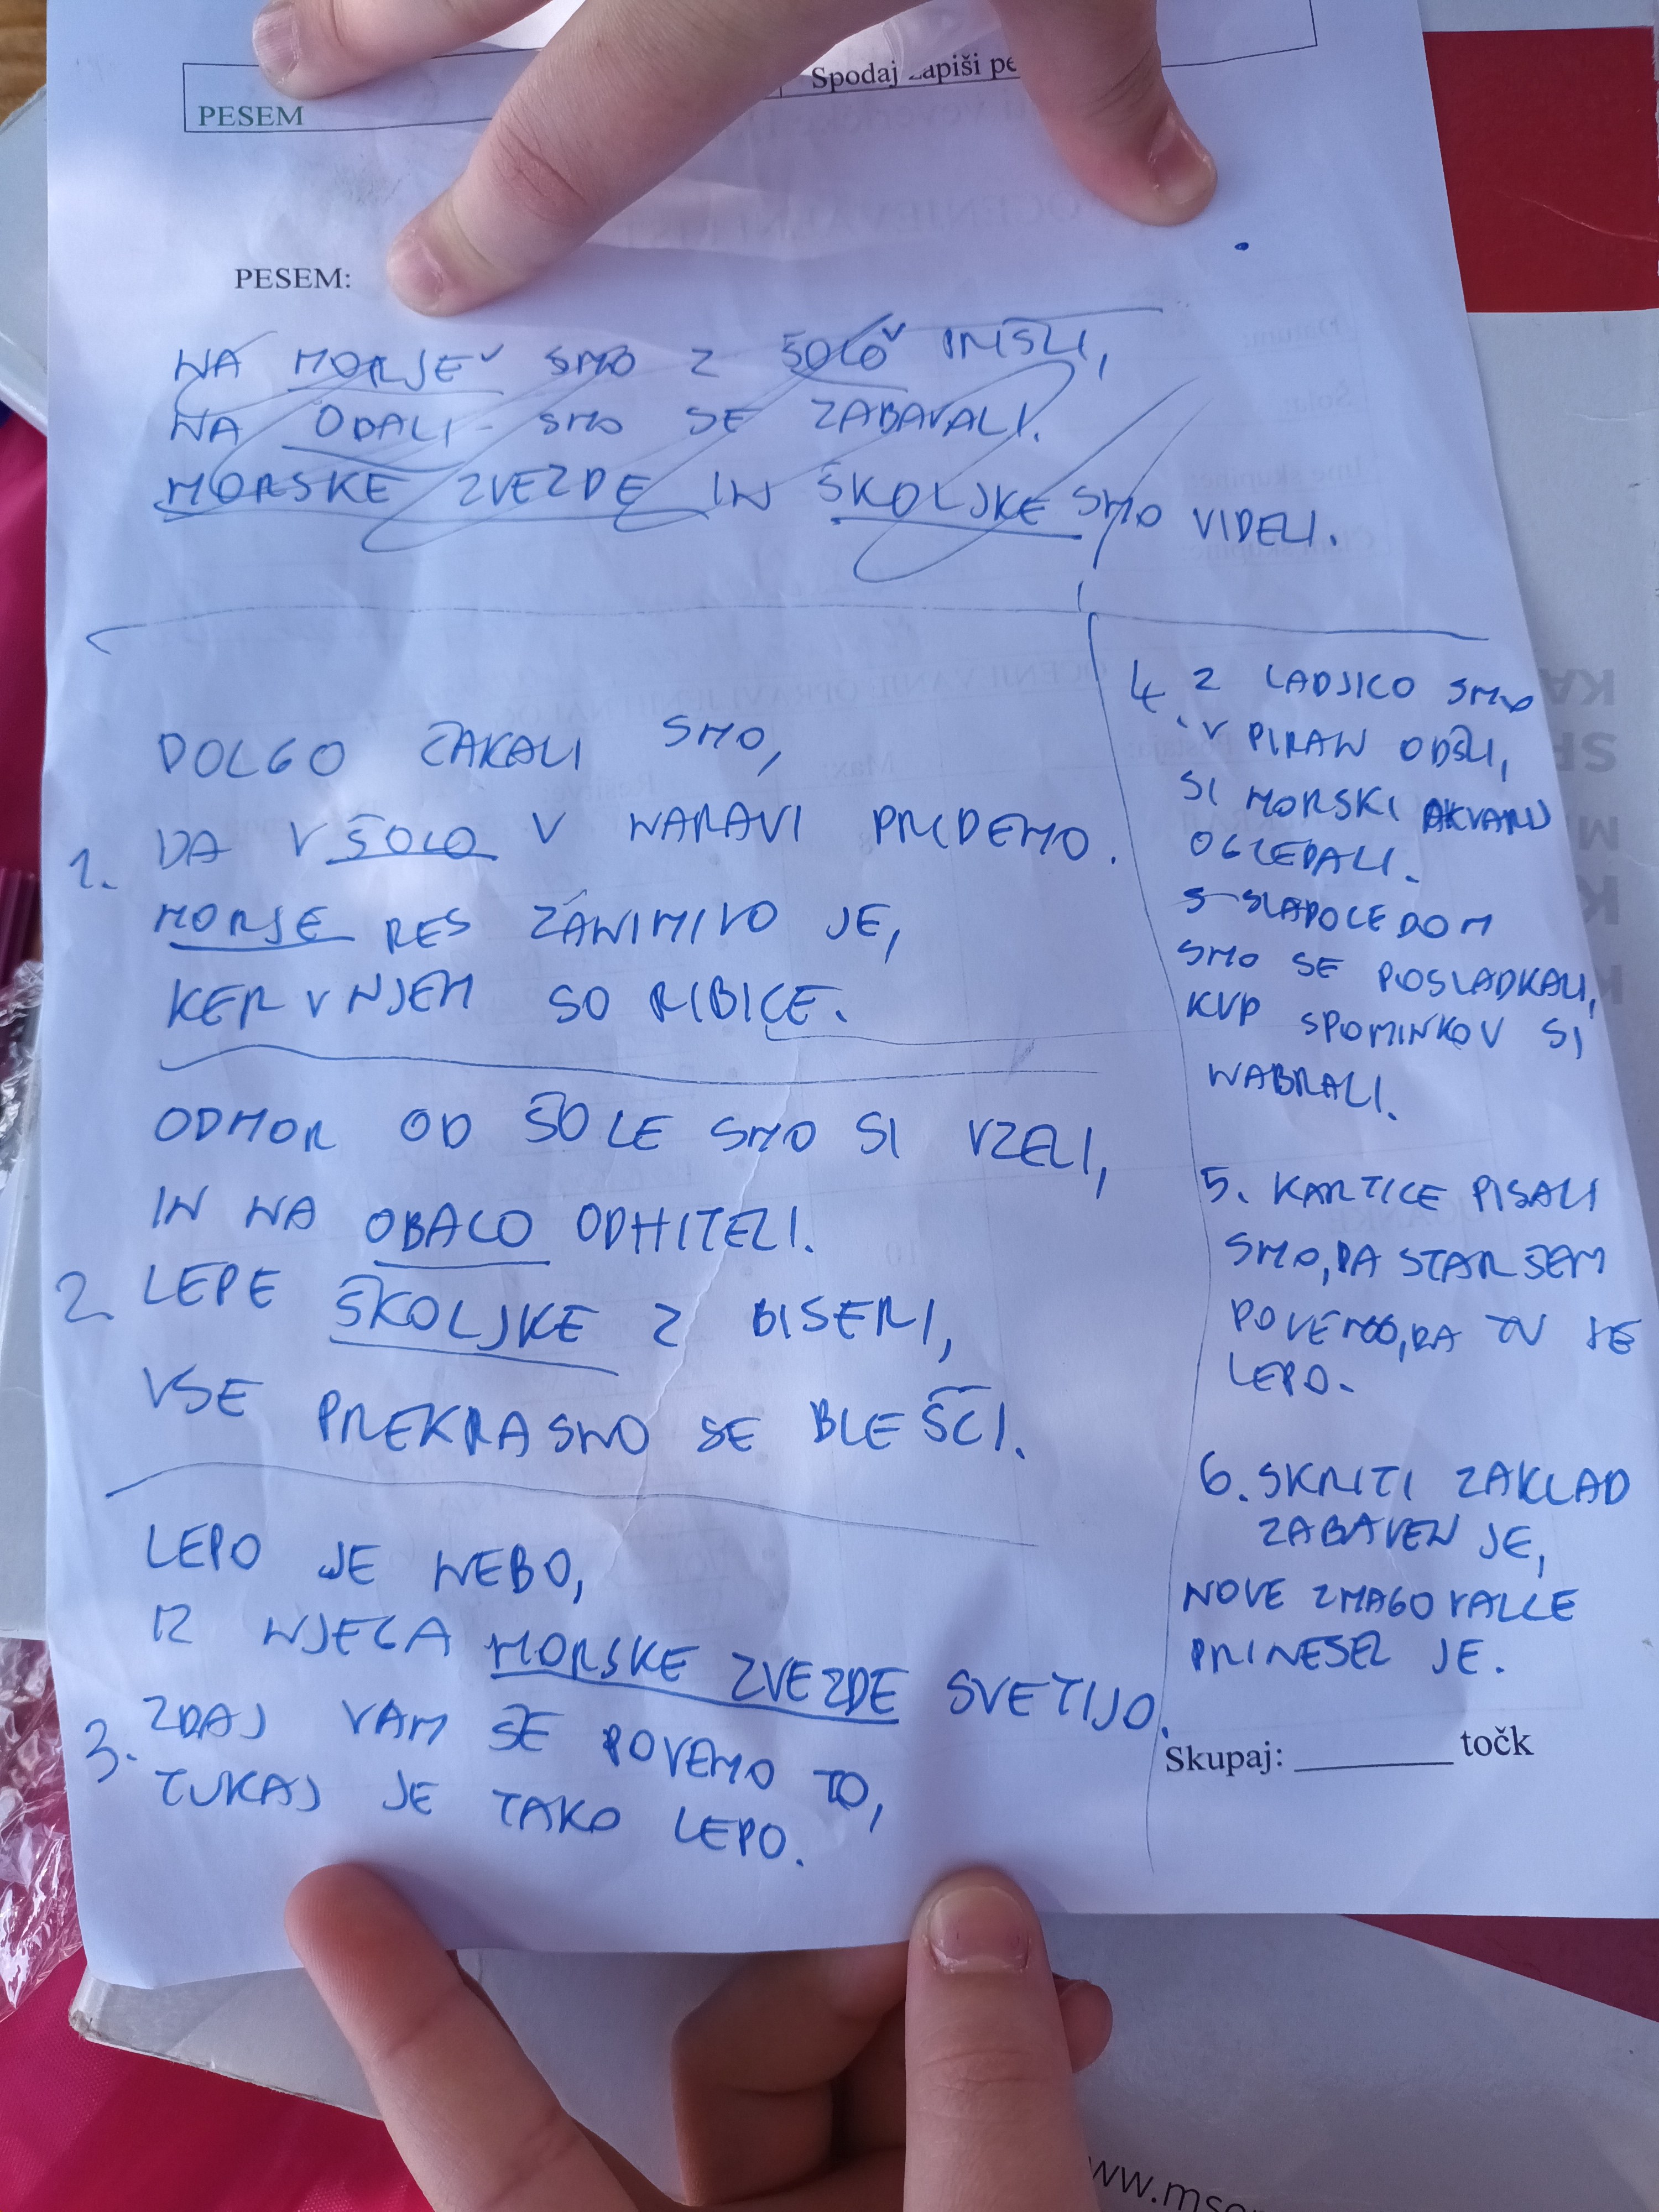 PESEM
Spodaj zapiši
PESEM:
NA MORJE SMO Z ŠOLO PRIŠLI,
NA OBALI SMO SE ZABAVALI.
MORSKE ZVEZDE IN ŠKOLJKE SMO VIDELI.
1.
DOLGO ČAKALI SMO,
DA V ŠOLO V NARAVI PRIDEMO.
MORJE RES ZANIMIVO JE,
KER V NJEM SO RIBICE.
2.
ODMOR OD ŠOLE SMO SI VZELI,
IN NA OBALO ODHITELI.
LEPE ŠKOLJKE Z BISERI,
VSE PREKRASNO SE BLEŠČI.
3.
LEPO JE NEBO,
IZ NJEGA MORSKE ZVEZDE SVETIJO.
ZDAJ VAM ŠE POVEMO TO,
TUKAJ JE TAKO LEPO.
4. Z LADJICO SMO
V PIRAN ODŠLI,
SI MORSKI AKVARIJ
OGLEDALI.
S SLADOLEDOM
SMO SE POSLADKALI,
KUP SPOMINKOV SI
NABRALI.
5. KARTICE PISALI
SMO, DA STARŠEM
POVEMO, DA TU JE
LEPO.
6. SKRITI ZAKLAD
ZABAVEN JE,
NOVE ZMAGOVALCE
PRINESEL JE.
Skupaj: ________ točk